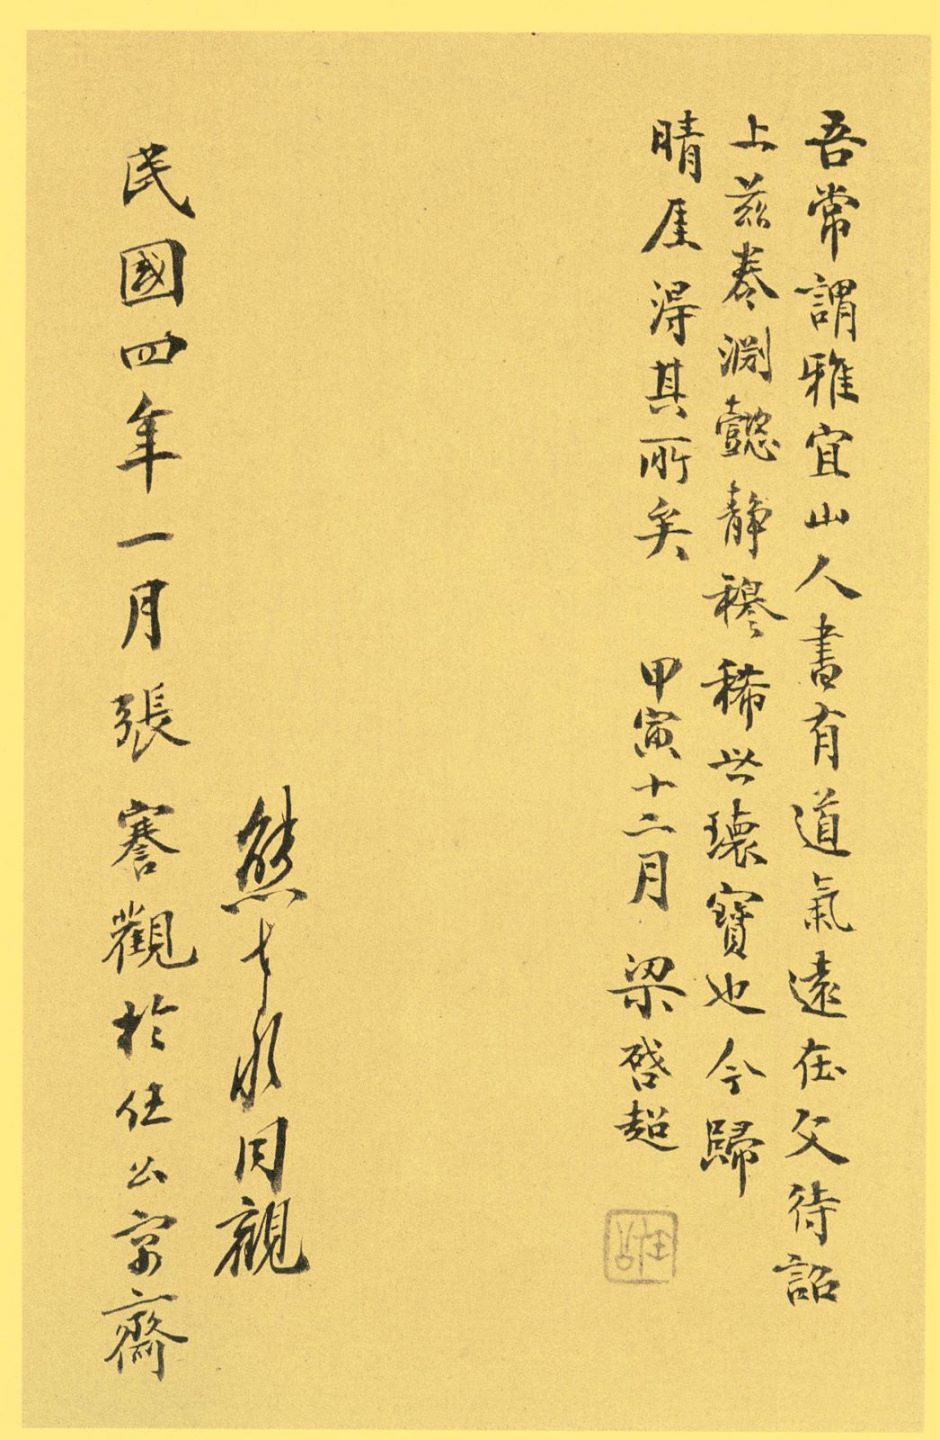 吾常謂雅宜山人書有道氣遠在父待詔
上茲卷淵懿靜穆稀世瓌寶也今歸
晴厓得其所矣 甲寅十二月 梁啓超
任公
熊希齡同觀
民國四年一月張謇觀於任公寓齋